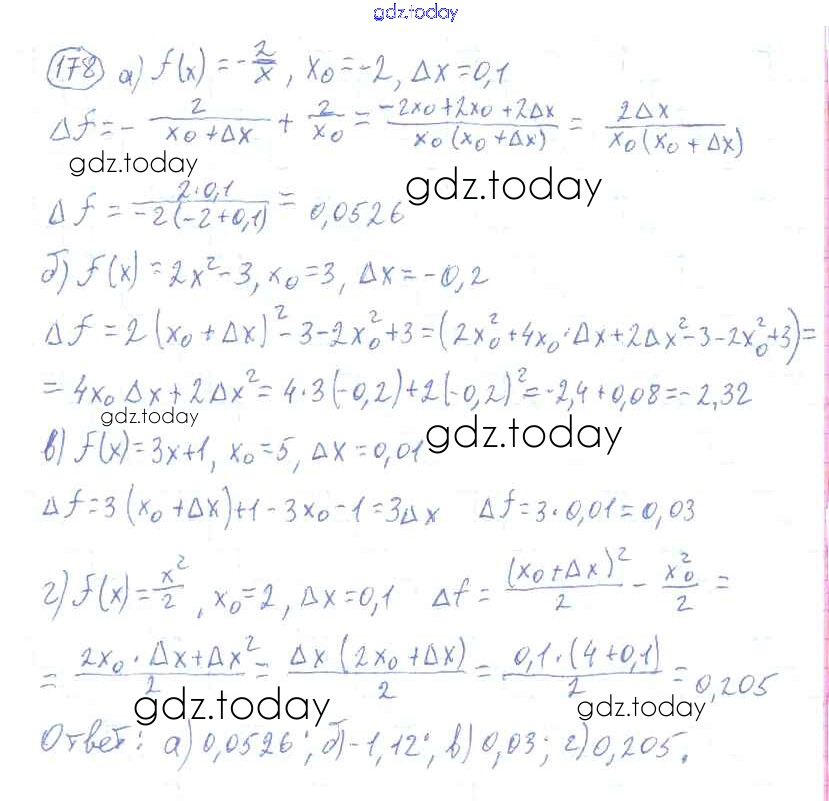 gdz.today
178 а) f(x) = -2/x, x₀ = -2, Δx = 0,1
Δf = - 2/(x₀ + Δx) + 2/x₀ = (-2x₀ + 2x₀ + 2Δx)/(x₀(x₀ + Δx)) = 2Δx/(x₀(x₀ + Δx))
gdz.today
gdz.today
Δf = 2·0,1/(-2(-2+0,1)) = 0,0526
б) f(x) = 2x² - 3, x₀ = 3, Δx = -0,2
Δf = 2(x₀ + Δx)² - 3 - 2x₀² + 3 = (2x₀² + 4x₀·Δx + 2Δx² - 3 - 2x₀² + 3) =
= 4x₀Δx + 2Δx² = 4·3(-0,2) + 2(-0,2)² = -2,4 + 0,08 = -2,32
gdz.today
gdz.today
в) f(x) = 3x+1, x₀ = 5, Δx = 0,01
Δf = 3(x₀ + Δx) + 1 - 3x₀ - 1 = 3Δx Δf = 3·0,01 = 0,03
г) f(x) = x²/2, x₀ = 2, Δx = 0,1 Δf = (x₀ + Δx)²/2 - x₀²/2 =
= (2x₀·Δx + Δx²)/2 = Δx(2x₀ + Δx)/2 = 0,1·(4+0,1)/2 = 0,205
gdz.today
gdz.today
Ответ: а) 0,0526; б) -1,12; в) 0,03; г) 0,205.